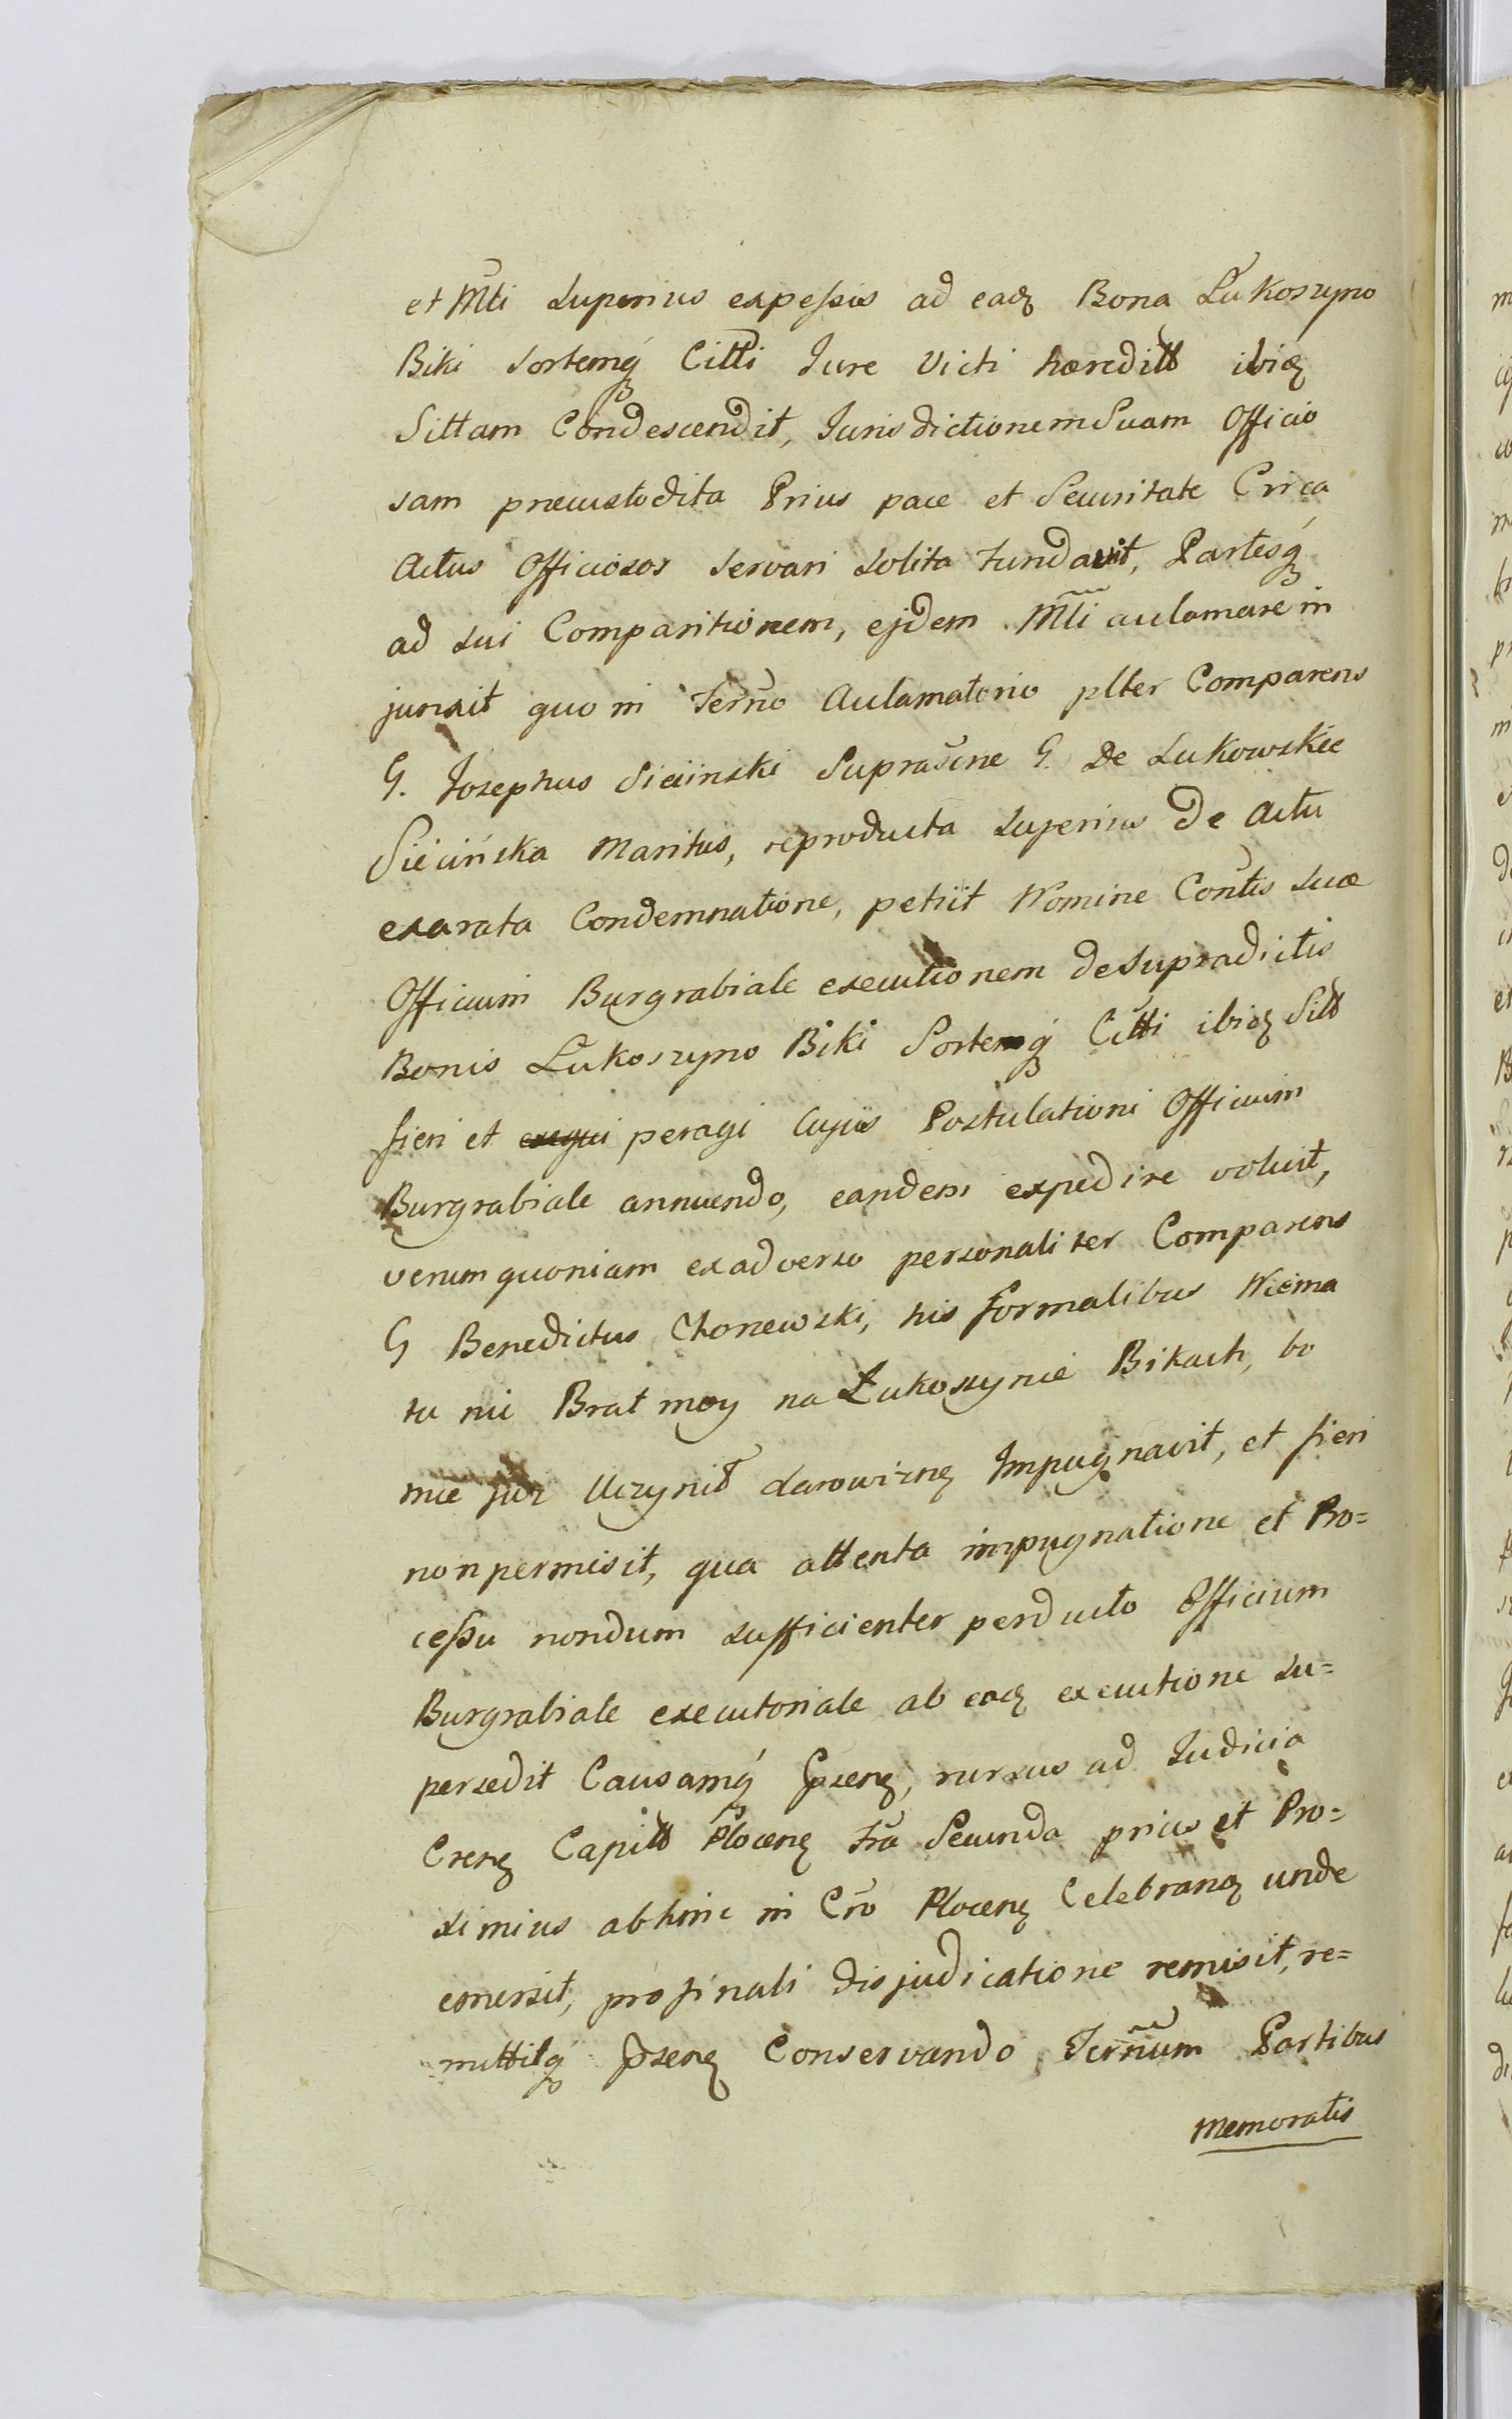 et Mti superius expessis ad eadȝ Bona Łukoszyno
Biki sortemq́ Citti Jure Victi hæreditt ibidȝ
Sittam Condescendit, Jurisdictionem Suam Officio
sam præcustodita Prius pace et Securitate Circa
Actus Officiosos servari solita fundavit, Partesq́
ad sui Comparitionem, ejdem Mtli acclamare in
junxit quo in Termo Acclamatorio plter Comparens
G. Josephus Siciinski Suprascne G. De Lukowskie
Siecińska Maritus, reproducta superius de actu
exarata Condemnatione, petiit Nomine Contis suæ
Officium Burgrabiale executionem de Supradictis
Bonis Łukoszyno Biki Sortemq́ Citti ibidȝ Sitt
fieri et exequi peragi Cujus Postulationi Officium
Burgrabiale annuendo, eandem expedire voluit,
verum quoniam ex adverso personaliter Comparens
G Benedictus Chonewski, his formalibus Niema
tu nic Brat moy na Łukoszynie Bikach, bo
mie już Uczynił darowiznę Impugnavit, et fieri
non permisit, qua attenta impugnatione et Pro=
cessu nondum sufficienter perducto Officium
Burgrabiale executoriale ab eadȝ executione su=
persedit Causamq́ Psenȝ, rursus ad Judicia
Crenȝ Capitt Plocenȝ fra Secunda prius et Pro=
ximius abhinc in Cro Plocenȝ Celebranȝ unde
emersit, pro finali disjudicatione remisit, re=
mittitq́ Psenȝ Conservando Termum Partibus
Memoratis